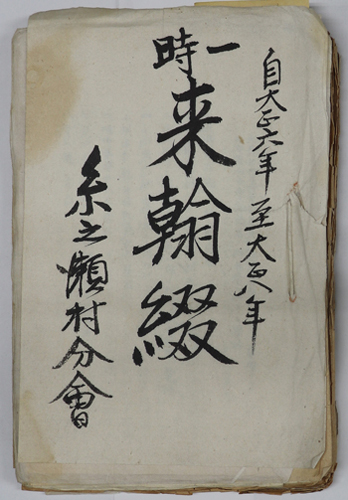 自大正六年至大正八年
一時
来翰綴
糸之瀬村分會